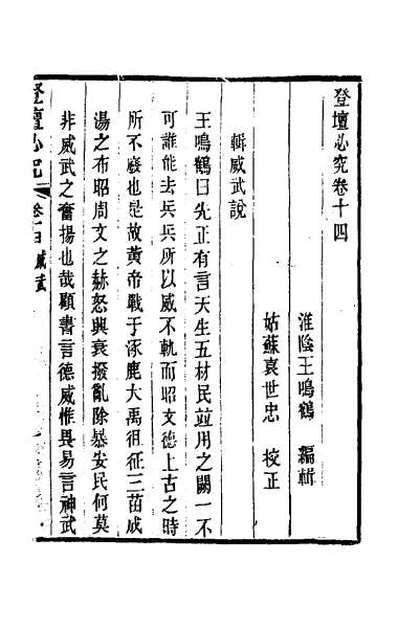 登壇必究卷十四
淮陰王鳴鶴 編輯
姑蘇袁世忠 校正
輯威武說
王鳴鶴曰先正有言天生五材民並用之闕一不
可誰能去兵兵所以威不軌而昭文德上古之時
所不廢也是故黃帝戰于涿鹿大禹徂征三苗成
湯之布昭周文之赫怒興衰撥亂除暴安民何莫
非威武之奮揚也哉顧書言德威惟畏易言神武
登壇必究 卷十四 威武